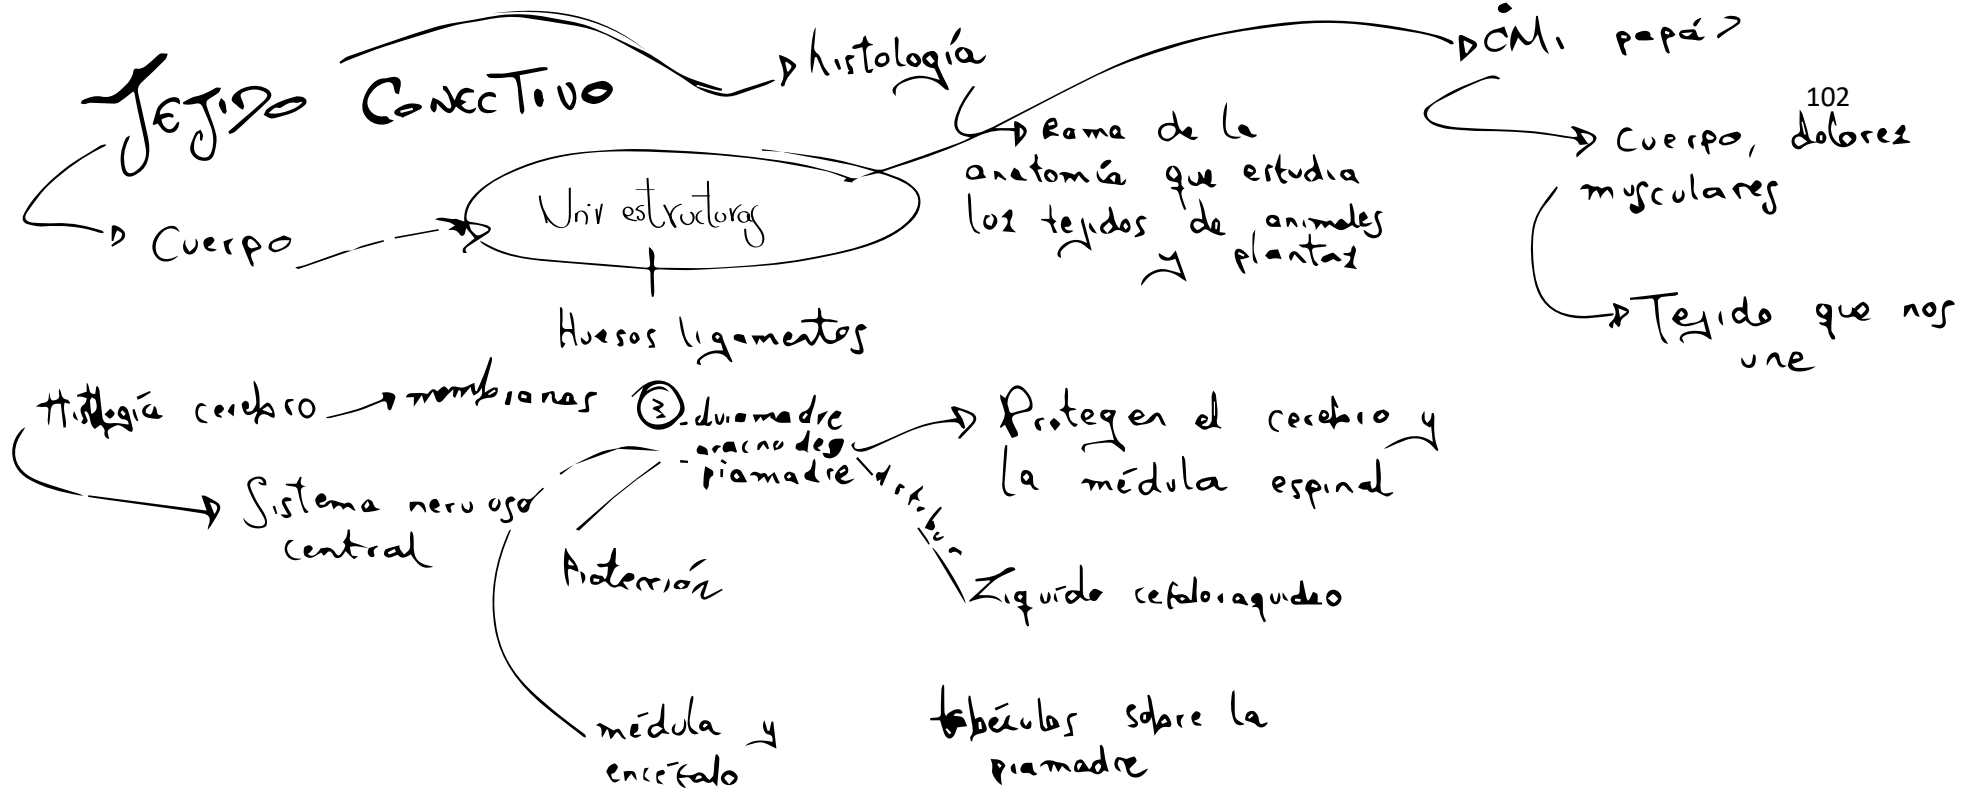 TEJIDO CONECTIVO
histología
¿Mi papá?
102
Rama de la
anatomía que estudia
los tejidos de animales
y plantas
Cuerpo, dolores
musculares
Cuerpo
Unir estructuras
Huesos ligamentos
Tejido que nos
une
Histología cerebro
membranas
3
- duramadre
- aracnodes
- piamadre
Protegen el cerebro y
la médula espinal
Sistema nervioso
central
Protección
Líquido cefaloraquideo
médula y
encéfalo
sobre la
piamadre